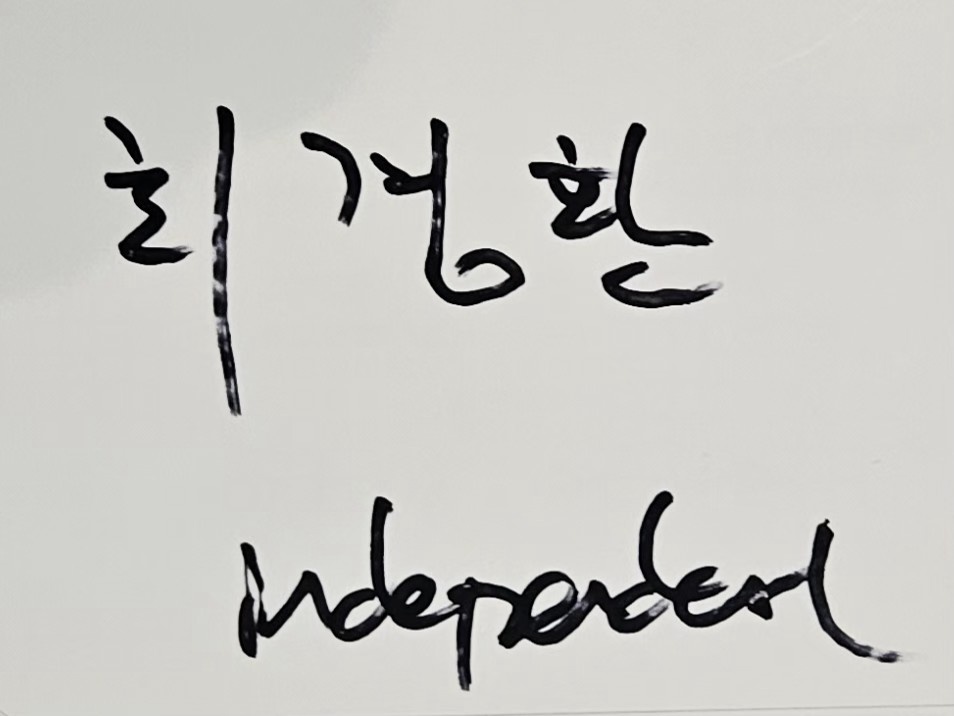 최경환
independent